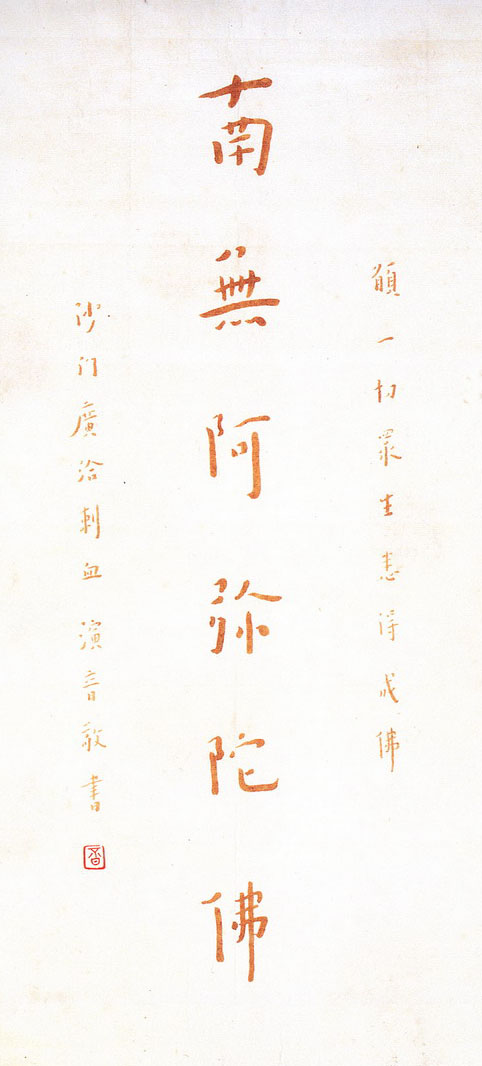 願一切眾生悉得成佛
南無阿弥陀佛
沙门廣洽刺血 演音敬書
音